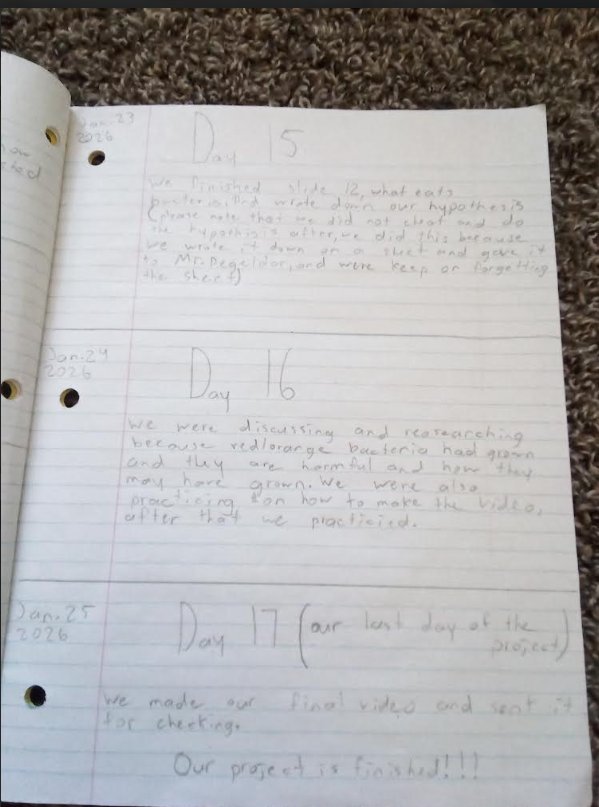 Jan. 23
2026
Day 15
We finished slide 12, what eats
bacteria. And wrote down our hypothesis
(please note that we did not cheat and do
the hypothisis after, we did this because
we wrote it down on a sheet and gave it
to Mr. and were keep on forgetting
the sheet)
Jan. 24
2026
Day 16
We were discussing and reasearching
because red/orange bacteria had grown
and they are harmful and how they
may have grown. We were also
practicing on how to make the video,
after that we practicied.
Jan. 25
2026
Day 17 (our last day of the
project)
We made our final video and sent it
for checking.
Our project is finished!!!